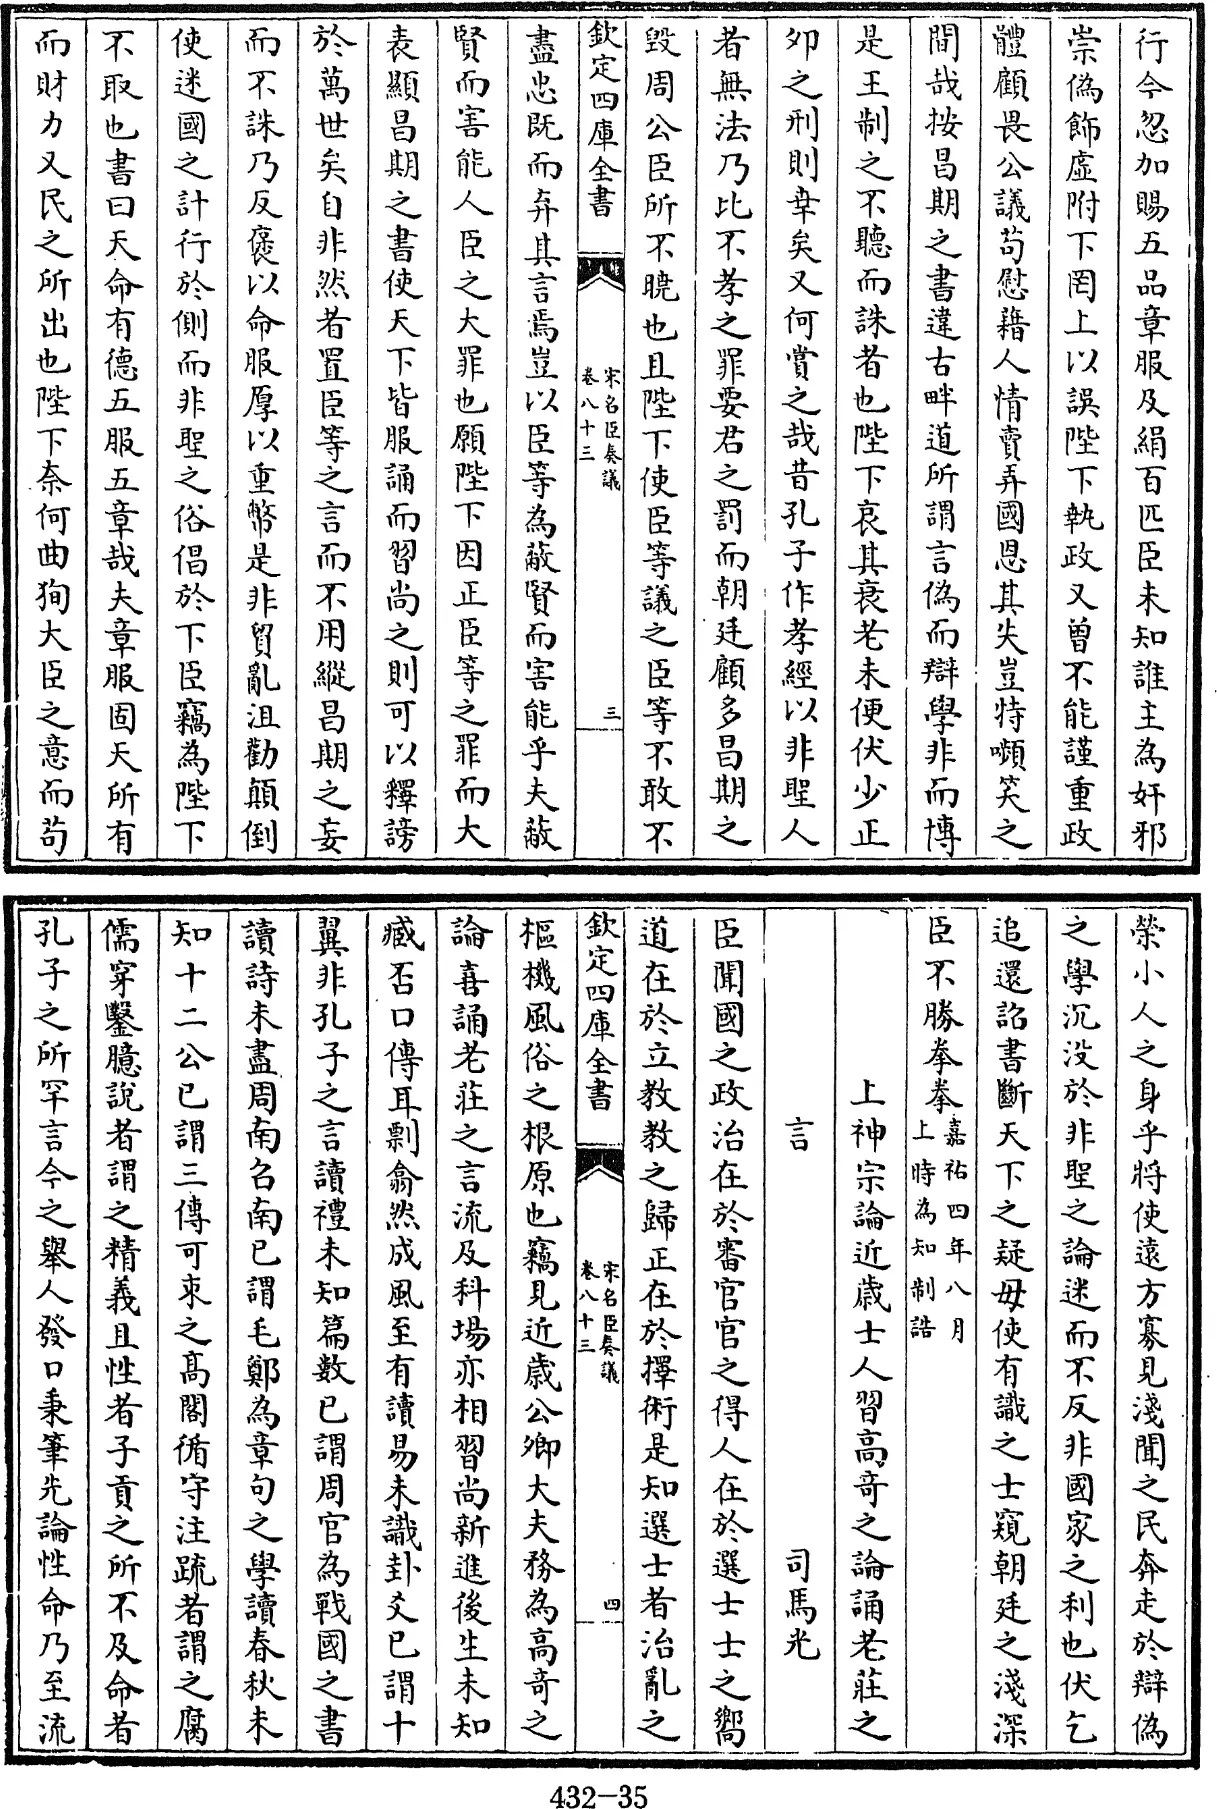 行今忽加賜五品章服及絹百匹臣未知誰主為奸邪
崇偽飾虛附下罔上以誤陛下執政又曾不能謹重政
體顧畏公議苟慰藉人情賣弄國恩其失豈特嚬笑之
間哉按昌期之書違古畔道所謂言偽而辯學非而博
是王制之不聽而誅者也陛下哀其衰老未便伏少正
夘之刑則幸矣又何賞之哉昔孔子作孝經以非聖人
者無法乃比不孝之罪要君之罰而朝廷顧多昌期之
毀周公臣所不曉也且陛下使臣等議之臣等不敢不
欽定四庫全書
宋名臣奏議
卷八十三
三
盡忠既而弃其言焉豈以臣等為蔽賢而害能乎夫蔽
賢而害能人臣之大罪也願陛下因正臣等之罪而大
表顯昌期之書使天下皆服誦而習尚之則可以釋謗
於萬世矣自非然者置臣等之言而不用縱昌期之妄
而不誅乃反襃以命服厚以重幣是非貿亂沮勸顛倒
使迷國之計行於側而非聖之俗倡於下臣竊為陛下
不取也書曰天命有德五服五章哉夫章服固天所有
而財力又民之所出也陛下奈何曲狥大臣之意而苟
榮小人之身乎將使遠方寡見淺聞之民奔走於辯偽
之學沉没於非聖之論迷而不反非國家之利也伏乞
追還詔書斷天下之疑毋使有識之士窺朝廷之淺深
臣不勝拳拳
嘉祐四年八月
上時為知制誥
上神宗論近歲士人習高奇之論誦老莊之
言
司馬光
臣聞國之政治在於審官官之得人在於選士士之嚮
道在於立教教之歸正在於擇術是知選士者治亂之
欽定四庫全書
宋名臣奏議
卷八十三
四
樞機風俗之根原也竊見近歲公卿大夫務為高奇之
論喜誦老莊之言流及科場亦相習尚新進後生未知
臧否口傳耳剽翕然成風至有讀易未識卦爻已謂十
翼非孔子之言讀禮未知篇數已謂周官為戰國之書
讀詩未盡周南召南已謂毛鄭為章句之學讀春秋未
知十二公已謂三傳可束之髙閣循守注疏者謂之腐
儒穿鑿臆說者謂之精義且性者子貢之所不及命者
孔子之所罕言今之舉人發口秉筆先論性命乃至流
432-35